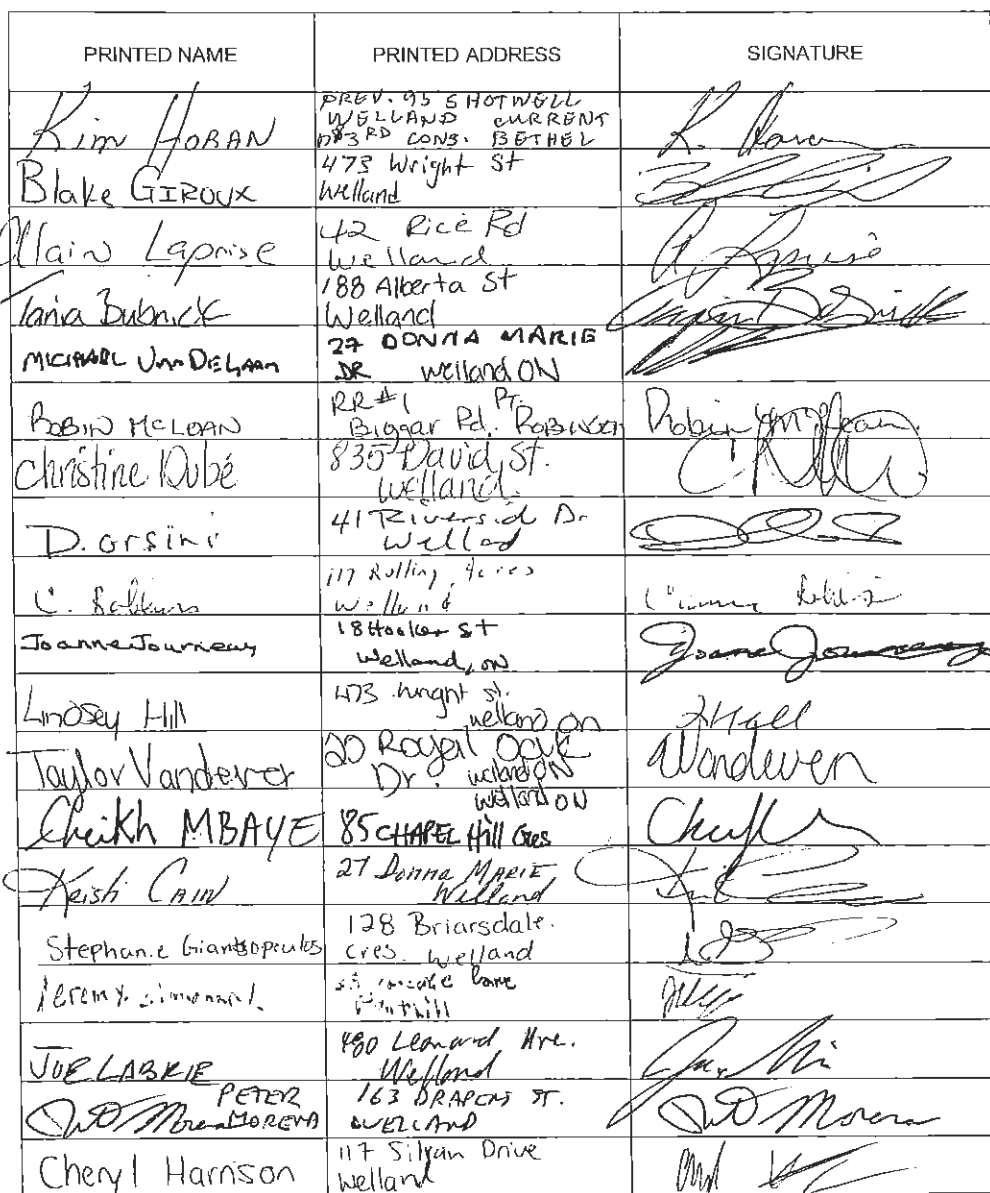 PRINTED NAME PRINTED ADDRESS SIGNATURE
Kim HORAN
PREV. 95 SHOTWELL
WELLAND CURRENT
3RD CONS. BETHEL
K. Horan
Blake GIROUX
473 Wright St
Welland
Allain Laprise
42 Rice Rd
Welland
A. Laprise
Tania Bubnick
188 Alberta St
Welland
MICHAEL VanDeLaan
27 DONNA MARIE
DR Welland ON
ROBIN MCLEAN
RR#1 Pt.
Biggar Rd. ROBINSON
Robin McLean
Christine Dubé
835 David St.
Welland.
D. orsini
41 Riversid Dr
Wellad
C. Robbins
117 Rolling Acres
Welland
Joanne Journeay
18 Hooker St
Welland, ON
Joanne Journeay
Lindsey Hill
473 Wright st.
Welland on
LHill
Taylor Vandever
20 Royal Oak
Dr. Welland ON
Cheikh MBAYE
Welland ON
85 CHAPEL Hill Cres
Keish CAIN
27 Donna MARIE
Welland
Stephanie Giantsopoulos
128 Briarsdale.
Cres. Welland
Jeremy
lane
Fonthill
JOE LABRIE
480 Leonard Ave.
Welland
PETER
MORENA
163 DRAPERS ST.
WELLAND
Cheryl Harrison
117 Silvan Drive
Welland